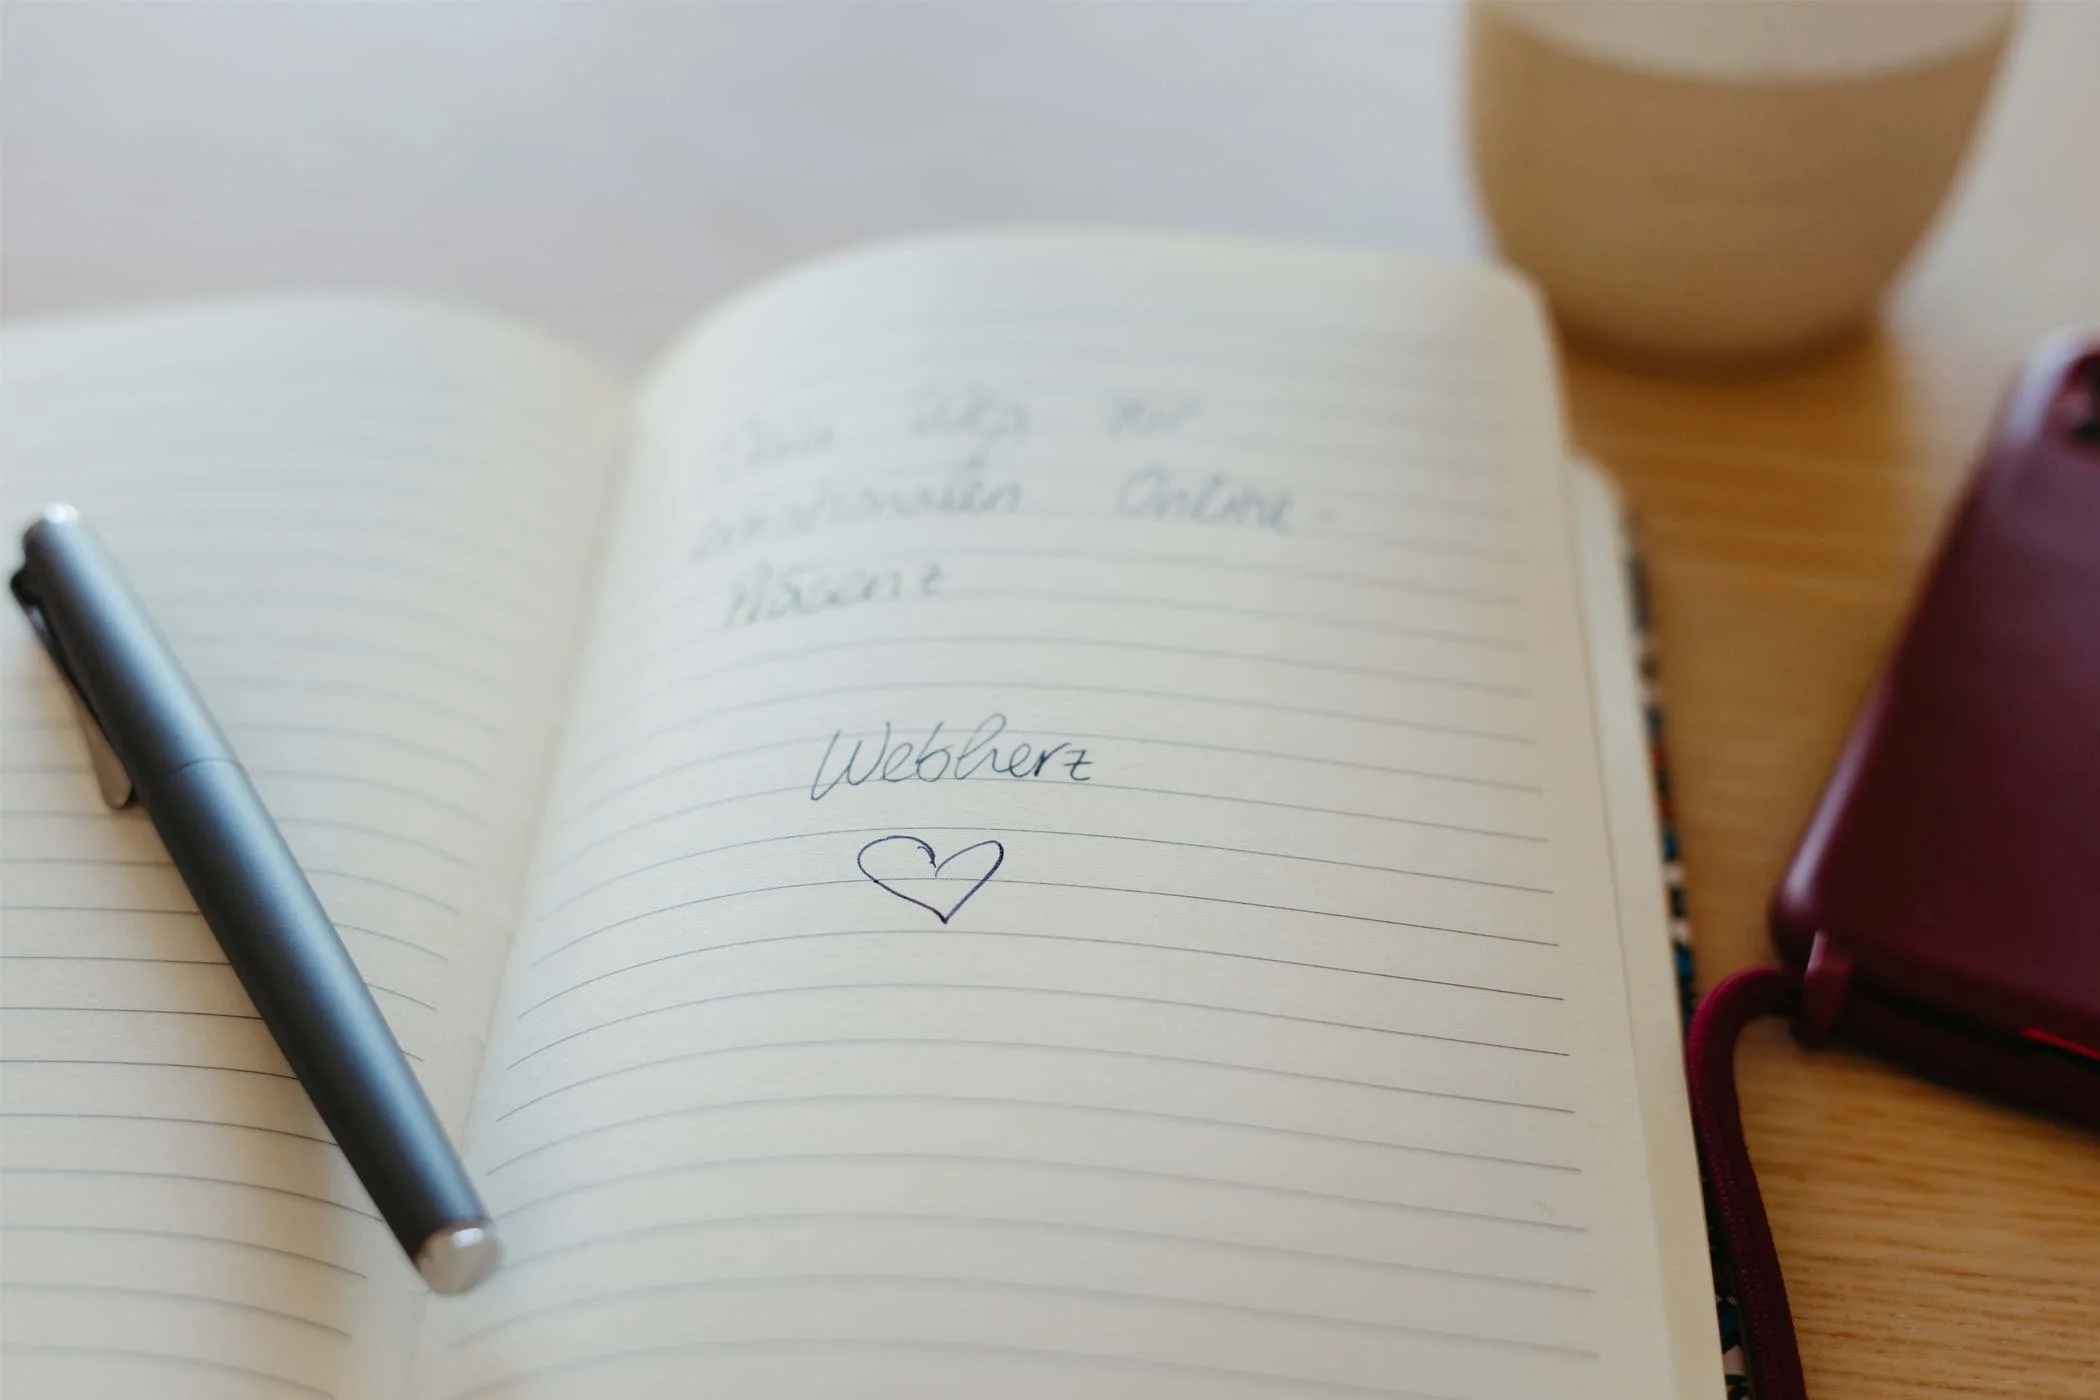 Dein Weg zur
emotionalen Online-
Präsenz
Webherz